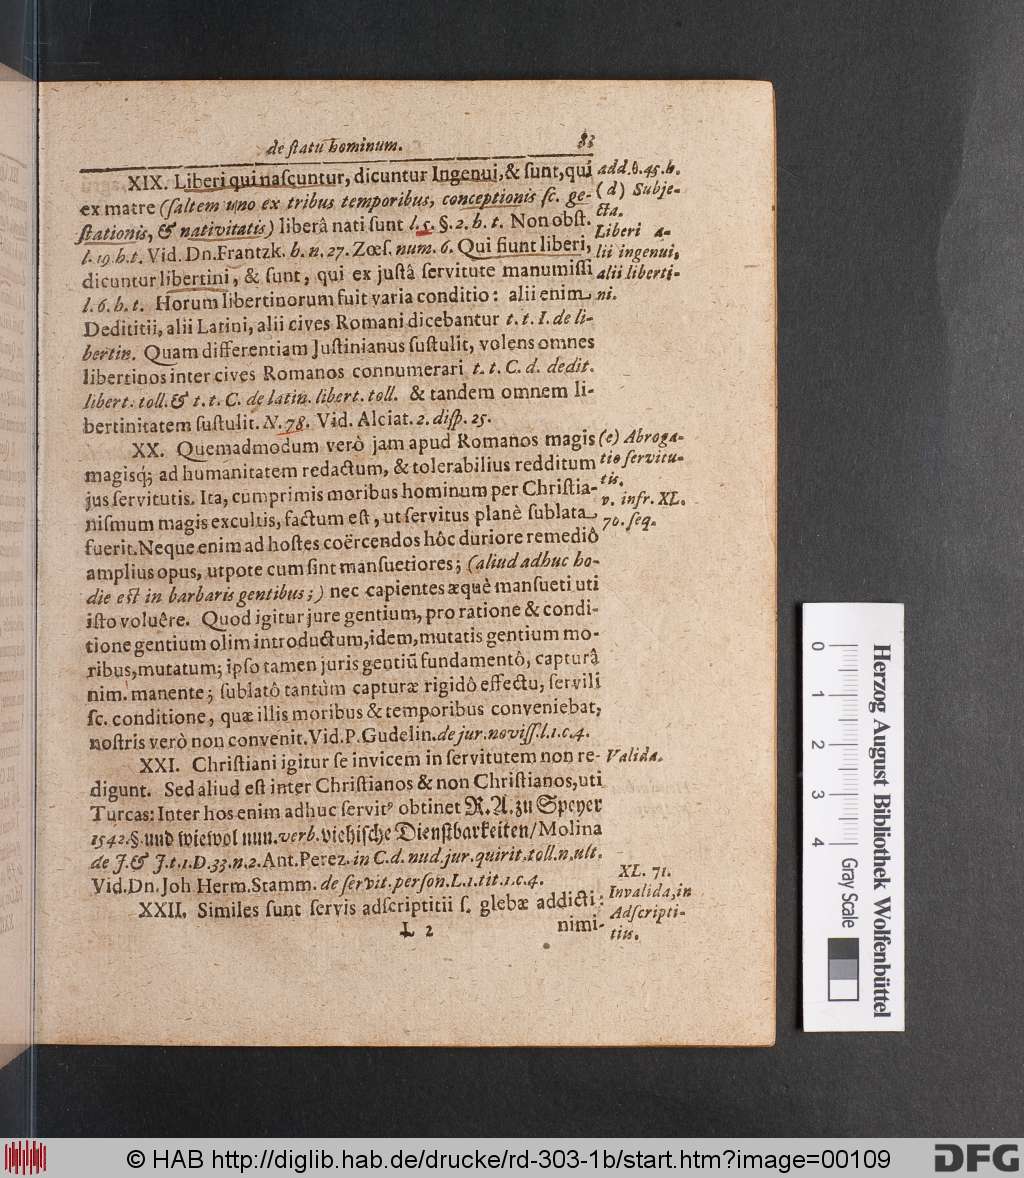 de ſtatu hominum. 83
XIX. Liberi qui naſcuntur, dicuntur Ingenui, & ſunt, qui
ex matre (ſaltem uno ex tribus temporibus, conceptionis ſc. ge-
ſtationis, & nativitatis) liberâ nati ſunt l. 5. §. 2. h. t. Non obſt.
l. 19. h. t. Vid. Dn. Frantzk. h. n. 27. Zœſ. num. 6. Qui fiunt liberi,
dicuntur libertini, & ſunt, qui ex juſtâ ſervitute manumiſſi
l. 6. h. t. Horum libertinorum fuit varia conditio: alii enim
Dedititii, alii Latini, alii cives Romani dicebantur t. t. I. de li-
bertin. Quam differentiam Juſtinianus ſuſtulit, volens omnes
libertinos inter cives Romanos connumerari t. t. C. d. dedit.
libert. toll. & t. t. C. de latin. libert. toll. & tandem omnem li-
bertinitatem ſuſtulit. N. 78. Vid. Alciat. 2. diſp. 25.
add. §. 45. h.
(d) Subje-
cta.
Liberi a-
lii ingenui,
alii liberti-
ni.
XX. Quemadmodum verò jam apud Romanos magis
magisq́; ad humanitatem redactum, & tolerabilius redditum
jus ſervitutis. Ita, cumprimis moribus hominum per Chriſtia-
niſmum magis excultis, factum eſt, ut ſervitus planè ſublata
fuerit. Neque enim ad hoſtes coërcendos hôc duriore remediô
amplius opus, utpote cum ſint manſuetiores; (aliud adhuc ho-
die eſt in barbaris gentibus;) nec capientes æquè manſueti uti
iſto voluêre. Quod igitur jure gentium, pro ratione & condi-
tione gentium olim introductum, idem, mutatis gentium mo-
ribus, mutatum; ipſo tamen juris gentiū fundamentô, capturâ
nim. manente; ſublatô tantùm capturæ rigidô effectu, ſervili
ſc. conditione, quæ illis moribus & temporibus conveniebat,
noſtris verò non convenit. Vid. P. Gudelin. de jur. noviſſ. l. 1. c. 4.
(e) Abroga-
tio ſervitu-
tis.
v. infr. XL.
70. ſeq.
XXI. Chriſtiani igitur ſe invicem in ſervitutem non re-
digunt. Sed aliud eſt inter Chriſtianos & non Chriſtianos, uti
Turcas: Inter hos enim adhuc ſervitꝰ obtinet R. A. zu Speyer
1542. §. und wiewol nun. verb. viehiſche Dienſtbarkeiten/ Molina
de J. & J. t. 1. D. 33. n. 2. Ant. Perez. in C. d. nud. jur. quirit. toll. n. ult.
Vid. Dn. Joh Herm. Stamm. de ſervit. perſon. L. 1. tit. 1. c. 4.
Valida.
XXII. Similes ſunt ſervis adſcriptitii ſ. glebæ addicti:
XL. 71.
Invalida, in
Adſcripti-
tiis.
L 2 nimi-
0 1 2 3 4
Gray Scale
Herzog August Bibliothek Wolfenbüttel
© HAB http://diglib.hab.de/drucke/rd-303-1b/start.htm?image=00109
DFG